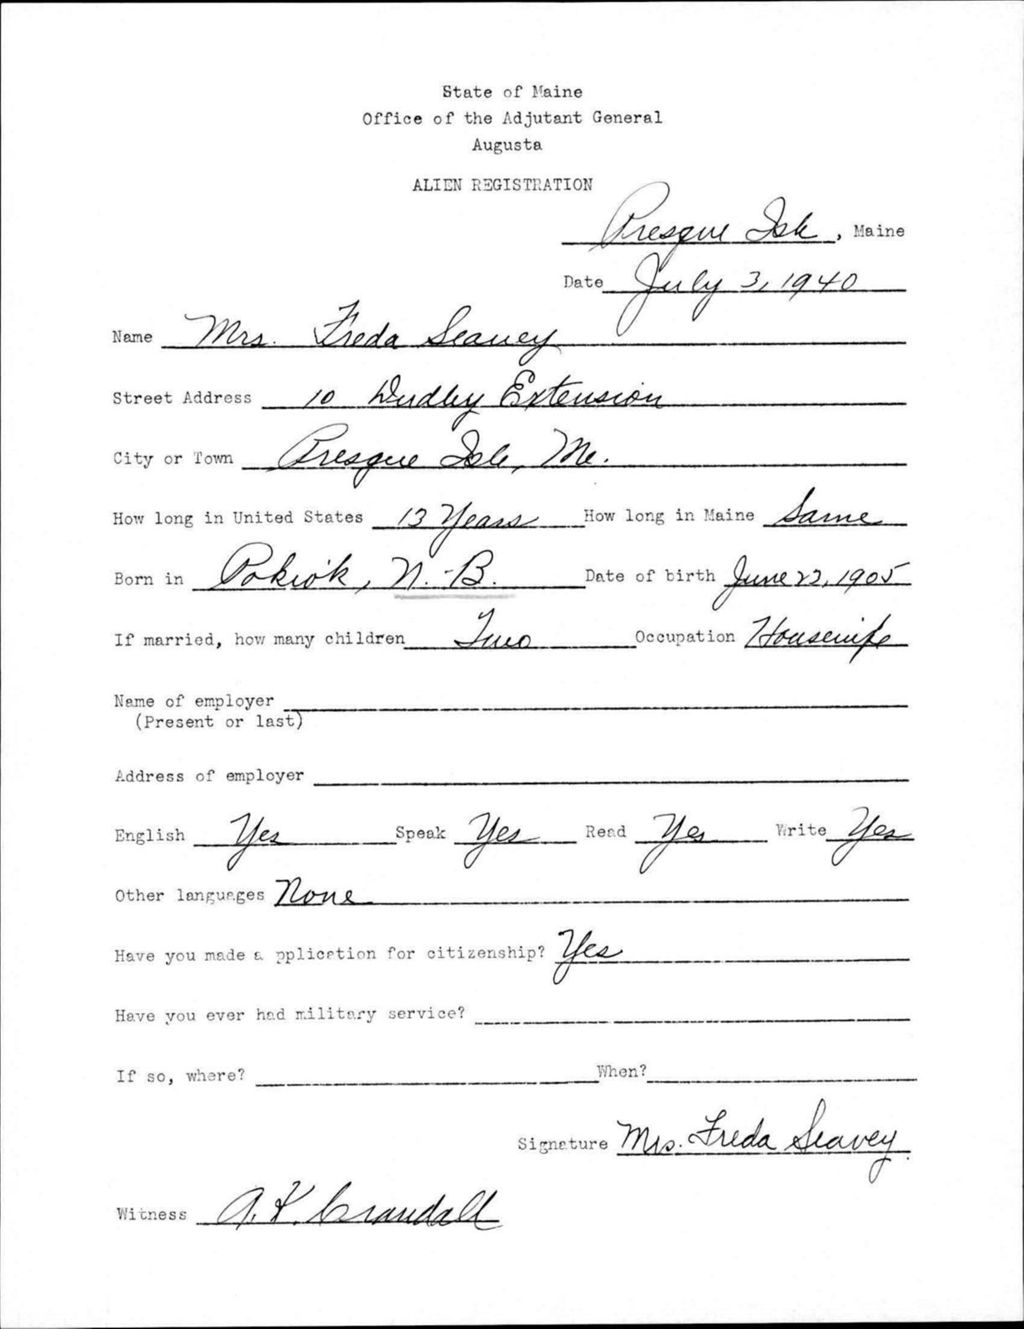 State of Maine
Office of the Adjutant General
Augusta
ALIEN REGISTRATION
Presque Isle, Maine
Date July 3, 1940
Name Mrs. Freda Seavey
Street Address 10 Dudley Extension
City or Town Presque Isle, Me.
How long in United States 13 Years How long in Maine Same
Born in Pokiok, N.-B. Date of birth June 22, 1905
If married, how many children Two Occupation Housewife
Name of employer
(Present or last)
Address of employer
English Yes Speak Yes Read Yes Write Yes
Other languages None
Have you made a pplication for citizenship? Yes
Have you ever had military service?
If so, where? When?
Signature Mrs. Freda Seavey
Witness Crandall